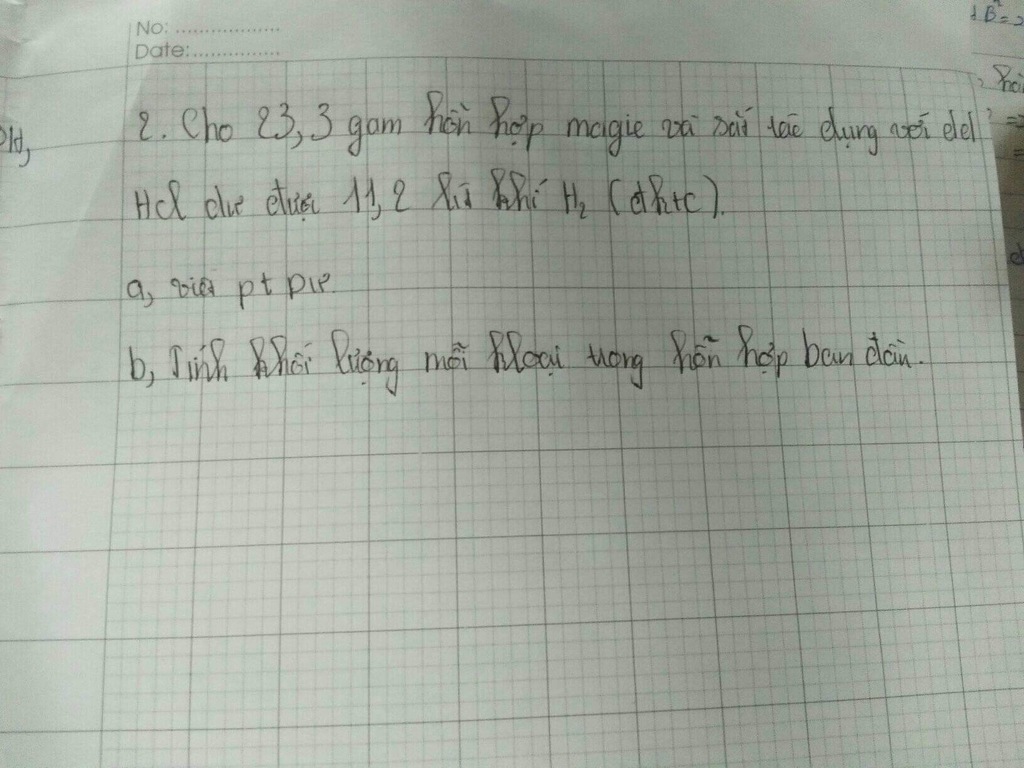 No: ..................
Date:...............
2. Cho 23,3 gam hỗn hợp magie và sắt tác dụng với dd
HCl dư được 11,2 lít khí H₂ (đktc).
a, viết pt pư
b, Tính khối lượng mỗi kloại trong hỗn hợp ban đầu.